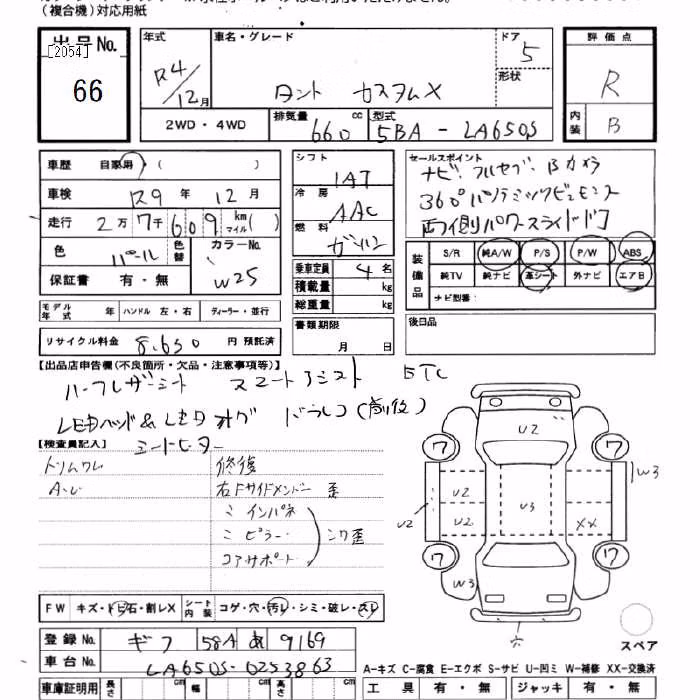 (複合機)対応用紙
出品No.
[2054]
66
年式 R4/12月
車名・グレード タント カスタムX
ドア 5
形状
2WD・4WD
排気量 660 cc
型式 5BA - LA650S
評価点 R
内装 B
車歴 自家用・( )
車検 R9 年 12 月
走行 2万7千609 km マイル( )
色 パール 色替
カラーNo. W25
保証書 有・無
モデル年式 年 ハンドル 左・右 ディーラー・並行
リサイクル料金 8,650 円 預託済
シフト IAT
冷房 AAC
燃料 ガソリン
乗車定員 4 名
積載量 kg
総重量 kg
書類期限
月 日
セールスポイント
ナビ・フルセグ・Bカメラ
360°パノラミックビューモニター
両側パワースライドドア
装備品
S/R 純A/W P/S P/W ABS
純TV 純ナビ 革シート 外ナビ エアB
ナビ型番:
後日品
【出品店申告欄(不良箇所・欠品・注意事項等)】
ハーフレザーシート スマートアシスト ETC
LEDヘッド&LEDフォグ ドラレコ(前後)
シートヒーター
【検査員記入】
トリムワレ
修復
右Fサイドメンバー 歪
ミ インパネ
ミ ピラー
シワ歪
コアサポート
U2
ワ
ワ
W3
U2
U2
U2
U3
XX
ワ
ワ
W3
スペア
FW キズ・トビ石・割レX
シート内装 コゲ・穴・汚レ・シミ・破レ・スレ
登録No. ギフ 581 あ 9169
車台No. LA650S-0253863
車庫証明用 長さ cm 幅 cm 高さ cm
A-キズ C-腐食 E-エクボ S-サビ U-凹ミ W-補修 XX-交換済
工具 有・無 ジャッキ 有・無